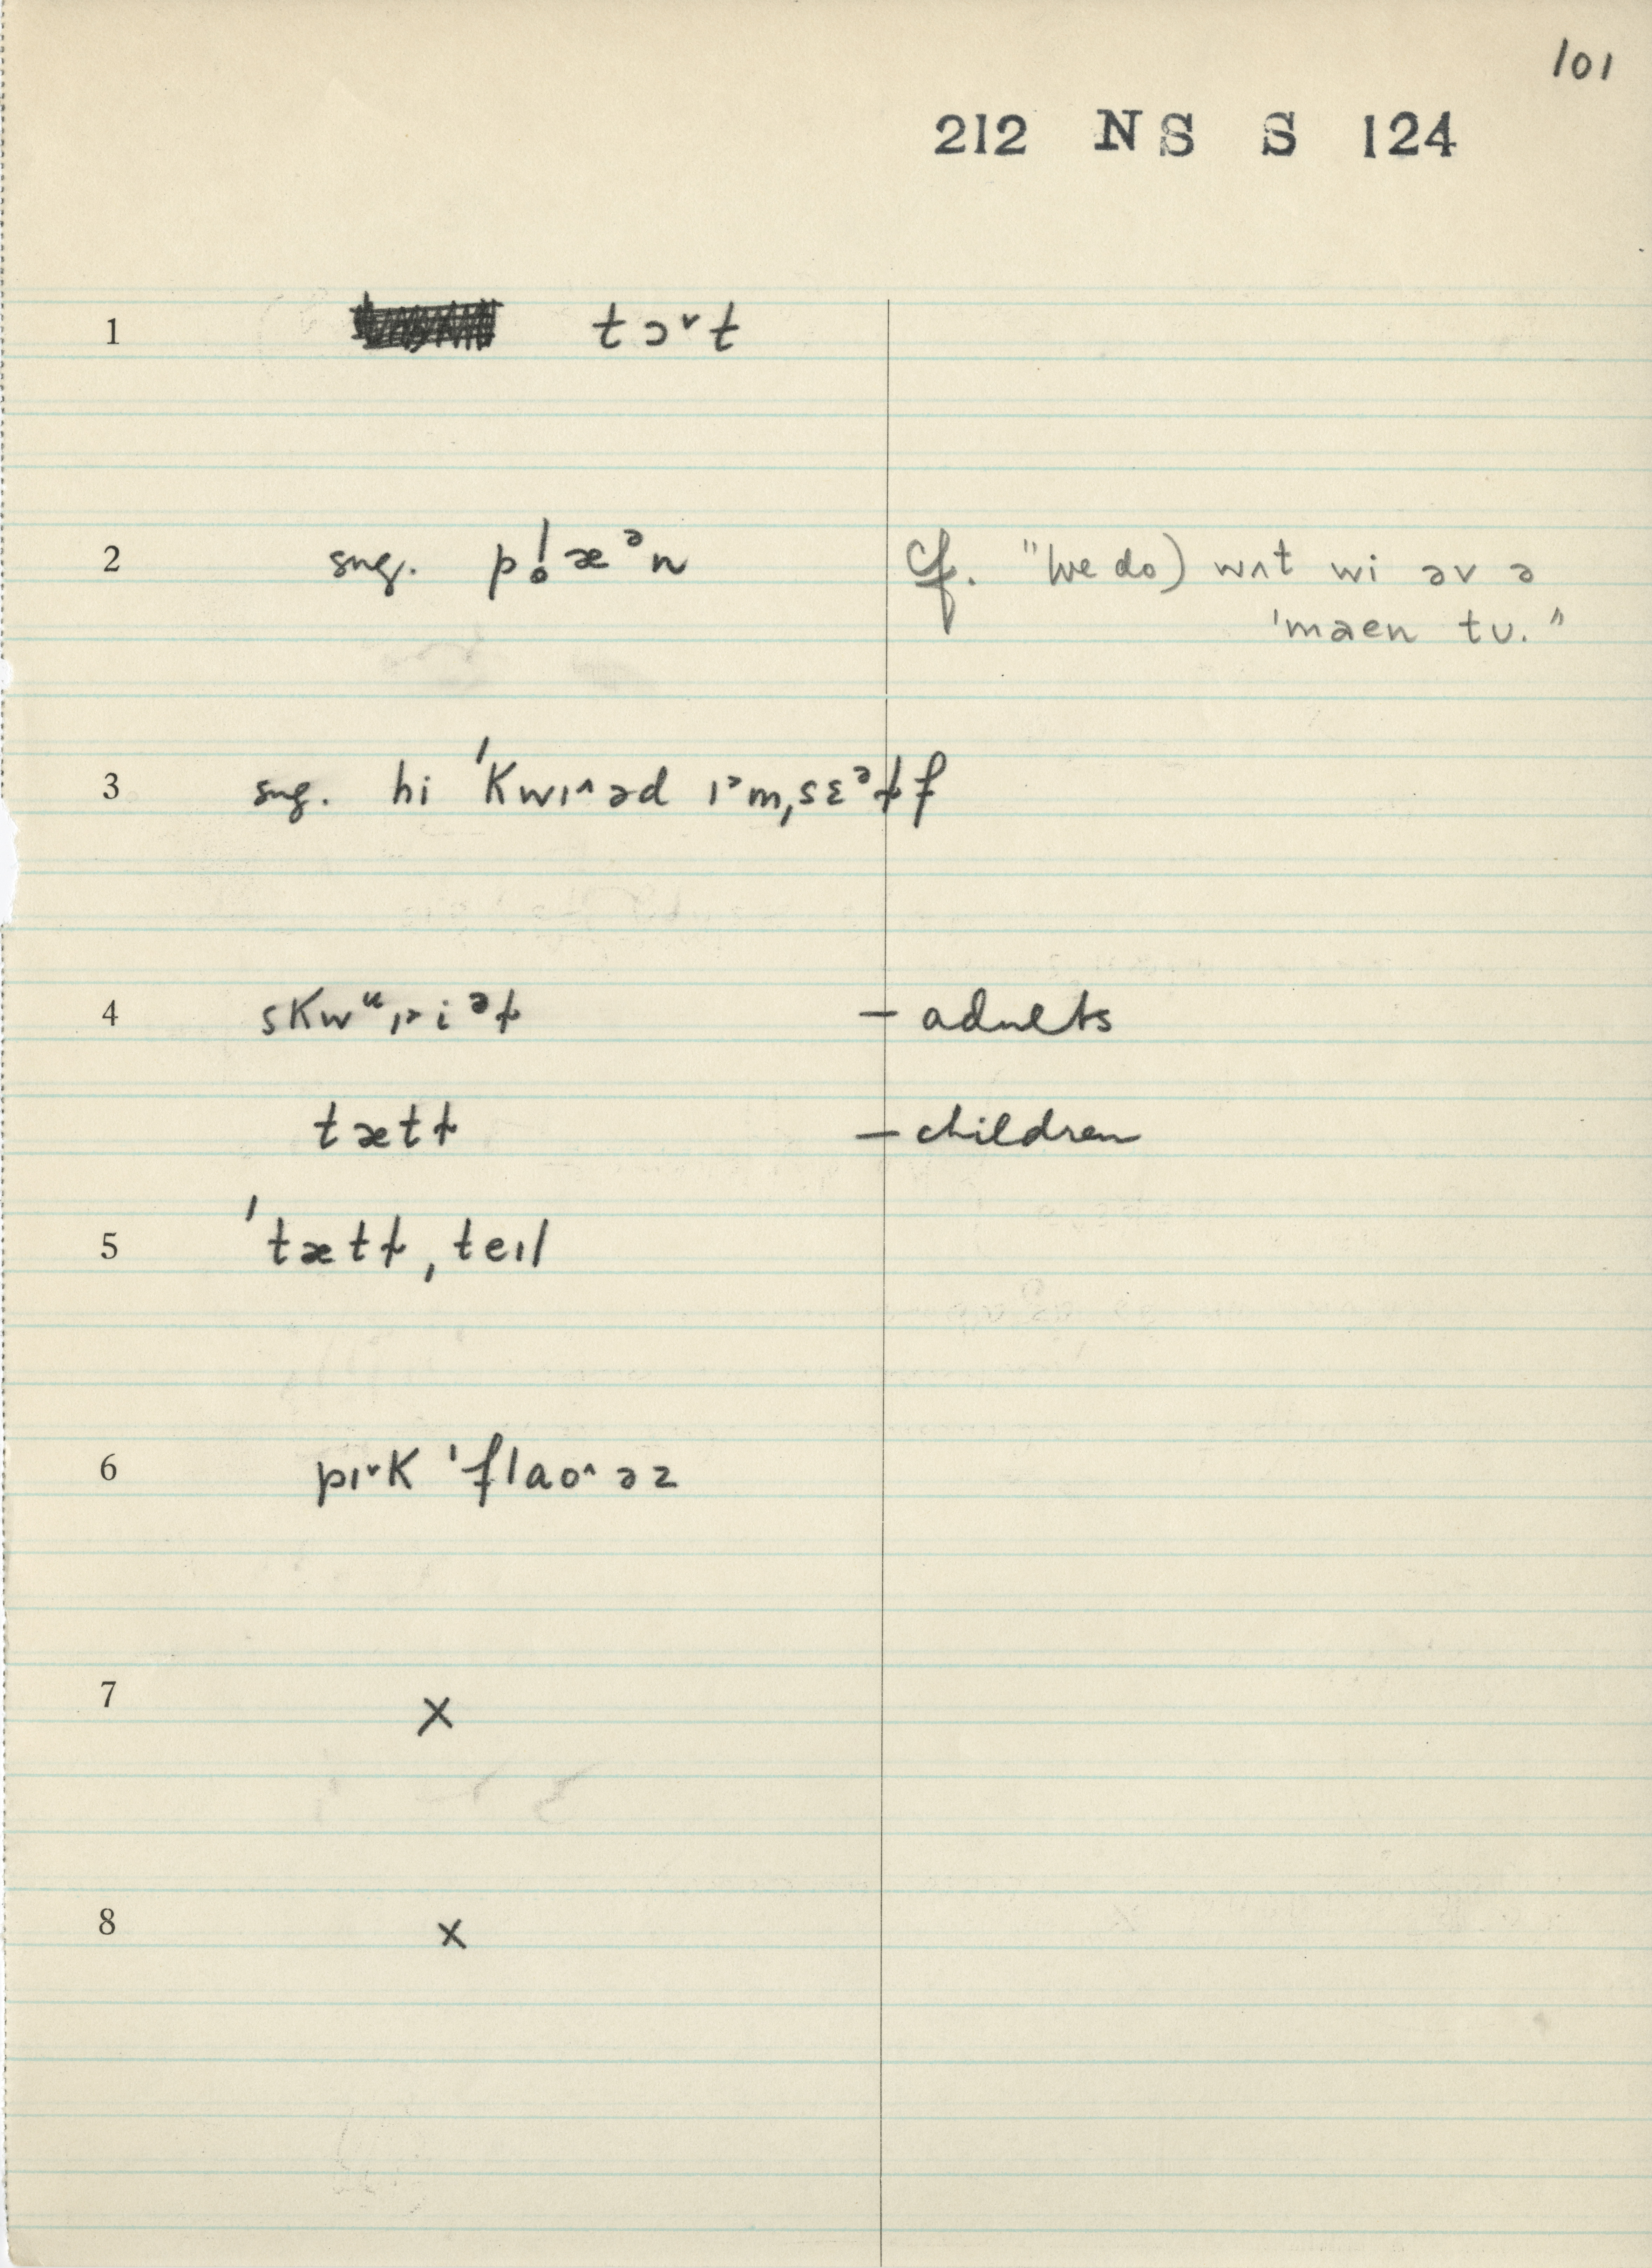 101
212 NS S 124
1 tɔ˅t
2 sug. pl̥æᵊn cf. "(we do) wʌt wi əv ə
ˈmaen tu."
3 sug. hi ˈkwɪ^əd ɪ˃mˌsɛᵊɫf
4 skwᵚˌɪ˃iᵊɫ – adults
tætɫ – children
5 ˈtætɫˌteɪl
6 pɪ˅k ˈflaʊ^əz
7 x
8 x